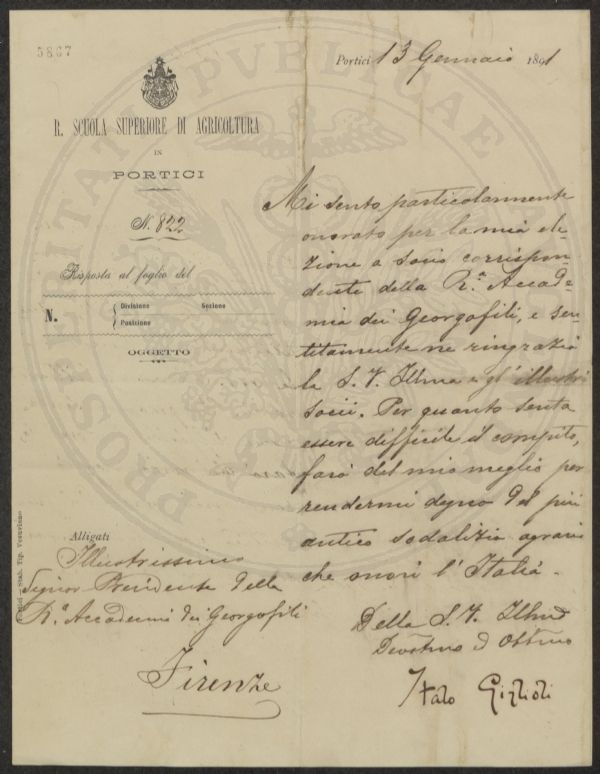 5867
Portici 13 Gennaio 1891
R. SCUOLA SUPERIORE DI AGRICOLTURA
IN
PORTICI
N. 822
Risposta al foglio del
N.
Divisione
Sezione
Posizione
OGGETTO
Mi sento particolarmente
onorato per la mia ele-
zione a socio corrispon
dente della R.ª Accade-
mia dei Georgofili, e sen-
titamente ne ringrazio
la S. V. Illma e gl' illustri
socii. Per quanto senta
essere difficile il compito,
farò del mio meglio per
rendermi degno del più
antico sodalizio agrario
che onori l'Italia.
Della S. V. Illma
Devotmo ed Obbmo
Italo Giglioli
Alligati
Illustrissimo
Signor Presidente della
R.ª Accademia dei Georgofili
Firenze
Stab. Tip. Vesuviano
PROSPERITATI PVBLICAE